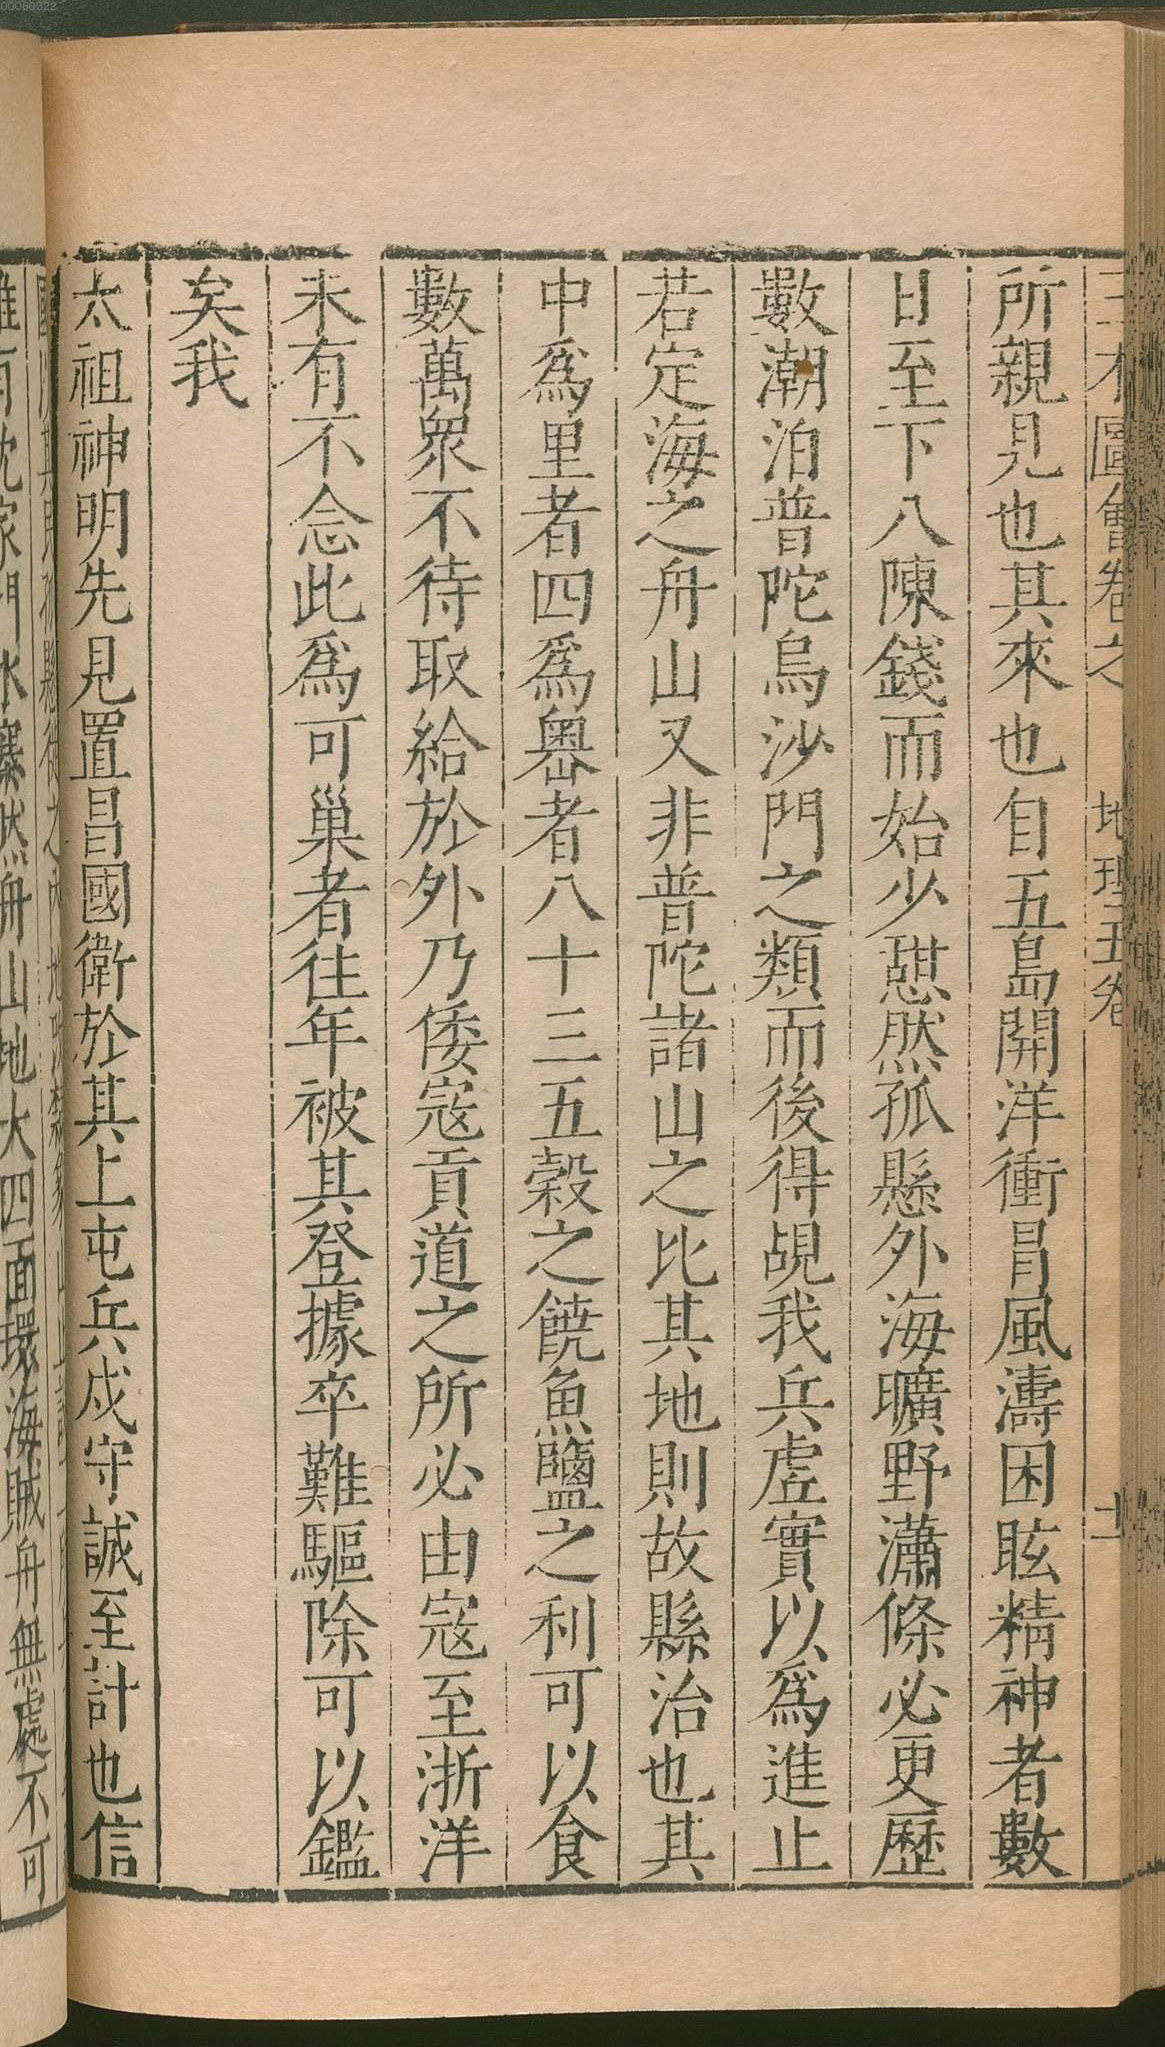 三才圖會卷之 地理五卷 十
所親見也其來也自五島開洋衝冒風濤困眩精神者數
日至下八陳錢而始少憇然孤懸外海曠野瀟條必更歷
數潮泊普陀烏沙門之類而後得覘我兵虛實以爲進止
若定海之舟山又非普陀諸山之比其地則故縣治也其
中爲里者四爲嶴者八十三五穀之饒魚鹽之利可以食
數萬衆不待取給於外乃倭寇貢道之所必由寇至浙洋
未有不念此爲可巢者往年被其登據卒難驅除可以鑑
矣我
太祖神明先見置昌國衛於其上屯兵戍守誠至計也信
舟山地大四面環海賊舟無處不可